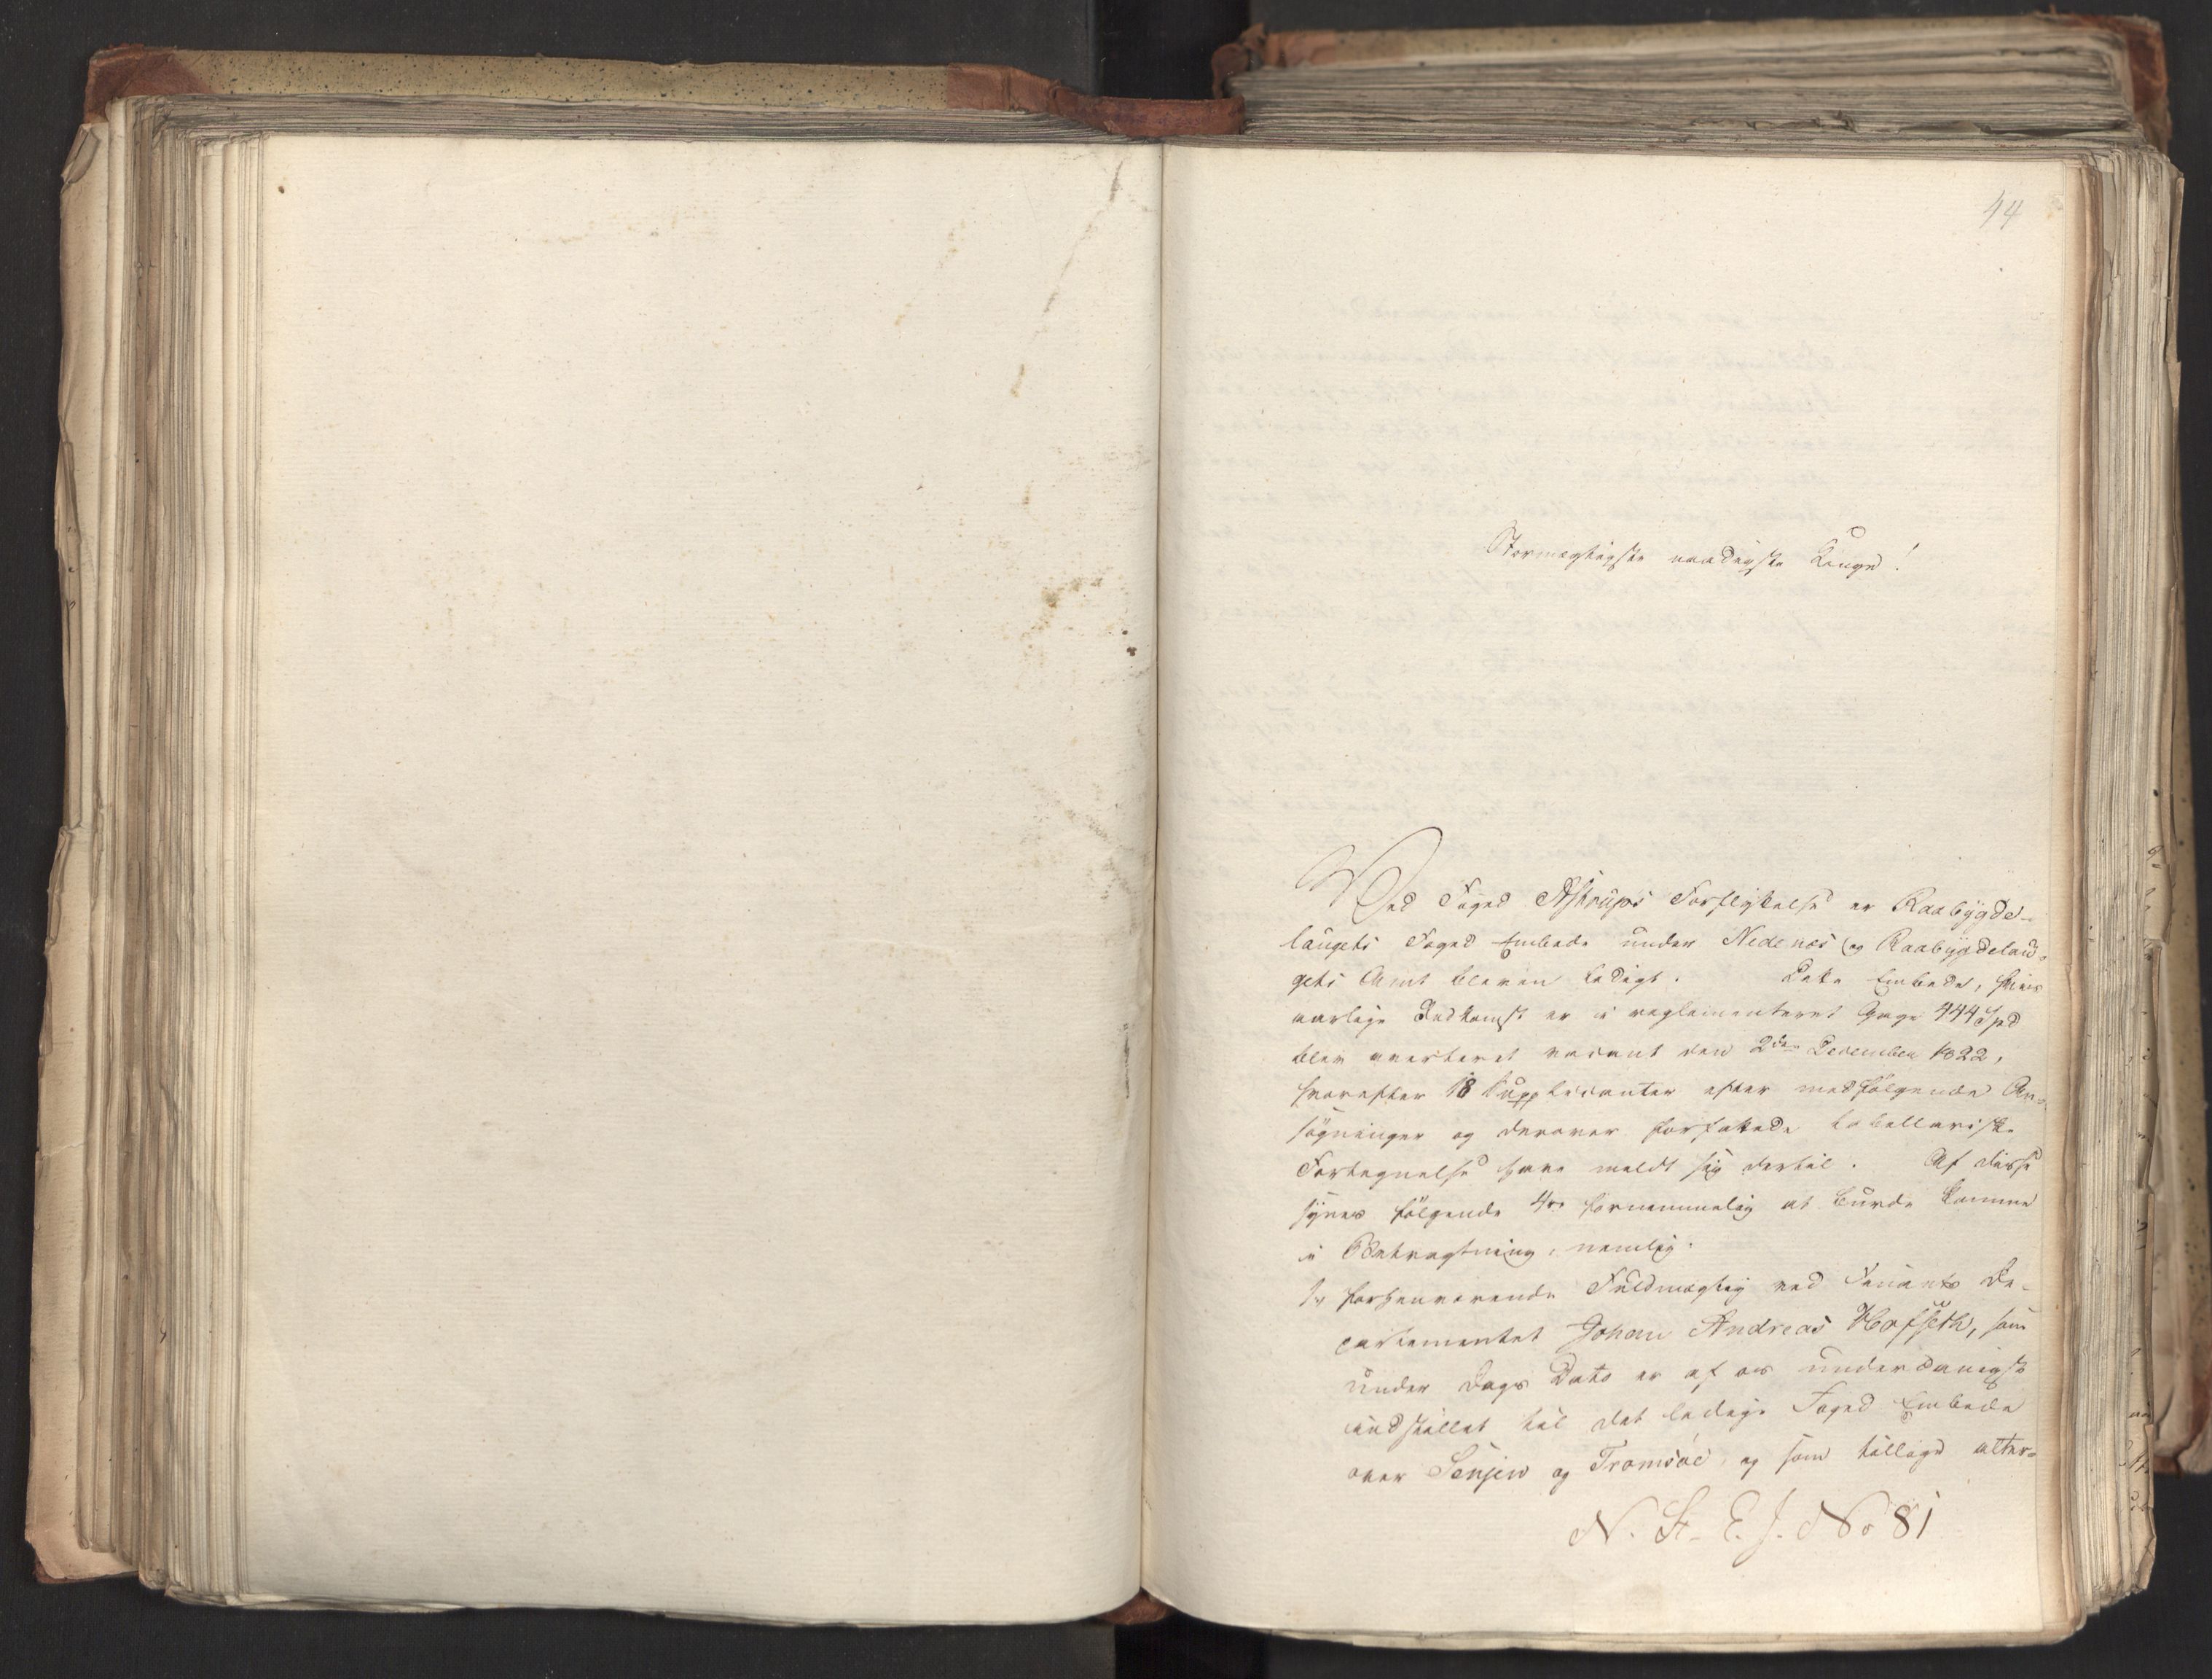 44
Stormægtigste naadigste Konge!
Ved Foged Astrups Forflyttelse er Raabÿgde-
laugets Foged Embede under Nedenes og Raabÿgdelau-
gets Amt bleven ledigt. Dette Embede, hvis
aarlige Indkomst er i reglementeret Gage 444 Spd
blev averteret vacant den 2den December 1822,
hvorefter 18 Supplicanter efter medfølgende An-
søgninger og derover forfattede tabellariske
Fortegnelse have meldt sig dertil. Af disse
synes følgende 4re fornemmelig at burde komme
i Betragtning, nemlig:
1, forhenværende Fuldmægtig ved Finants De-
partementet Johan Andreas Hofseth, som
under Dags Dato er af os underdanigst
indstillet til det ledige Foged Embede
over Senjen og Tromsøe, og som tillige atter-
N. St. E. J. No 81